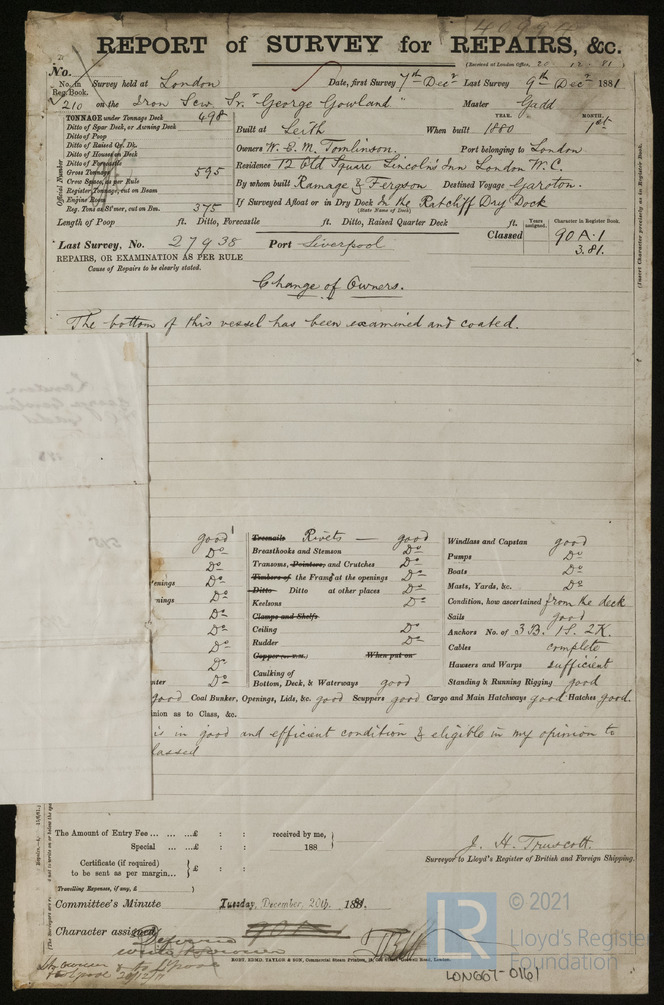 REPORT of SURVEY for REPAIRS, &c.
(Received at London Office, 20 . 12 . 81)
No.
No. in Reg. Book. Survey held at London Date, first Survey 7th Decr Last Survey 9th Decr 1881
210 on the Iron Scw. Sr. "George Gowland" Master Gadd
TONNAGE under Tonnage Deck 498
Ditto of Spar Deck, or Awning Deck
Ditto of Poop
Ditto of Raised Qr. Dk.
Ditto of Houses on Deck
Ditto of Forecastle
Gross Tonnage 595
Crew Space, as per Rule
Register Tonnage, cut on Beam
Engine Room
Reg. Tons as St'mer, cut on Bm. 375
Official Number
YEAR. MONTH.
Built at Leith When built 1880 1st
Owners W. E. M. Tomlinson. Port belonging to London
Residence 12 Old Square Lincoln's Inn London W.C.
By whom built Ramage & Ferguson Destined Voyage Garston.
If Surveyed Afloat or in Dry Dock In the Ratcliff Dry Dock
(State Name of Dock)
Length of Poop ft. Ditto, Forecastle ft. Ditto, Raised Quarter Deck ft.
Years assigned. Character in Register Book.
Classed 90 A.1
3.81.
Last Survey, No. 27938 Port Liverpool
REPAIRS, OR EXAMINATION AS PER RULE
Cause of Repairs to be clearly stated.
Change of Owners.
The bottom of this vessel has been examined and coated.
(Insert Character precisely as in Register Book.
good
Do
Do
enings Do
nings Do
Do
Do
Do
nter Do
Treenails Rivets — good
Breasthooks and Stemson Do
Transoms, Pointers, and Crutches Do
Timbers of the Frame at the openings Do
Ditto Ditto at other places Do
Keelsons Do
Clamps and Shelfs
Ceiling Do
Rudder Do
Copper When put on
Caulking of
Bottom, Deck, & Waterways good
Windlass and Capstan good
Pumps Do
Boats Do
Masts, Yards, &c. Do
Condition, how ascertained from the deck
Sails good
Anchors No. of 3 B. 1 S. 2 K.
Cables complete
Hausers and Warps sufficient
Standing & Running Rigging good
good Coal Bunker, Openings, Lids, &c. good Scuppers good Cargo and Main Hatchways good Hatches good.
nion as to Class, &c.
is in good and efficient condition & eligible in my opinion to
lassed
The Amount of Entry Fee ... ... ...£ : : received by me,
Special ... ...£ : : 188
Certificate (if required)
to be sent as per margin... £ : :
Travelling Expenses, if any, £
J. H. Truscott.
Surveyor to Lloyd's Register of British and Foreign Shipping.
Committee's Minute Tuesday, December, 20th, 1881.
Character assigned
Deferred
ROBT. EDMD. TAYLOR & SON, Commercial Steam Printers, London.
LON667-0161
LR
© 2021
Lloyd's Register
Foundation